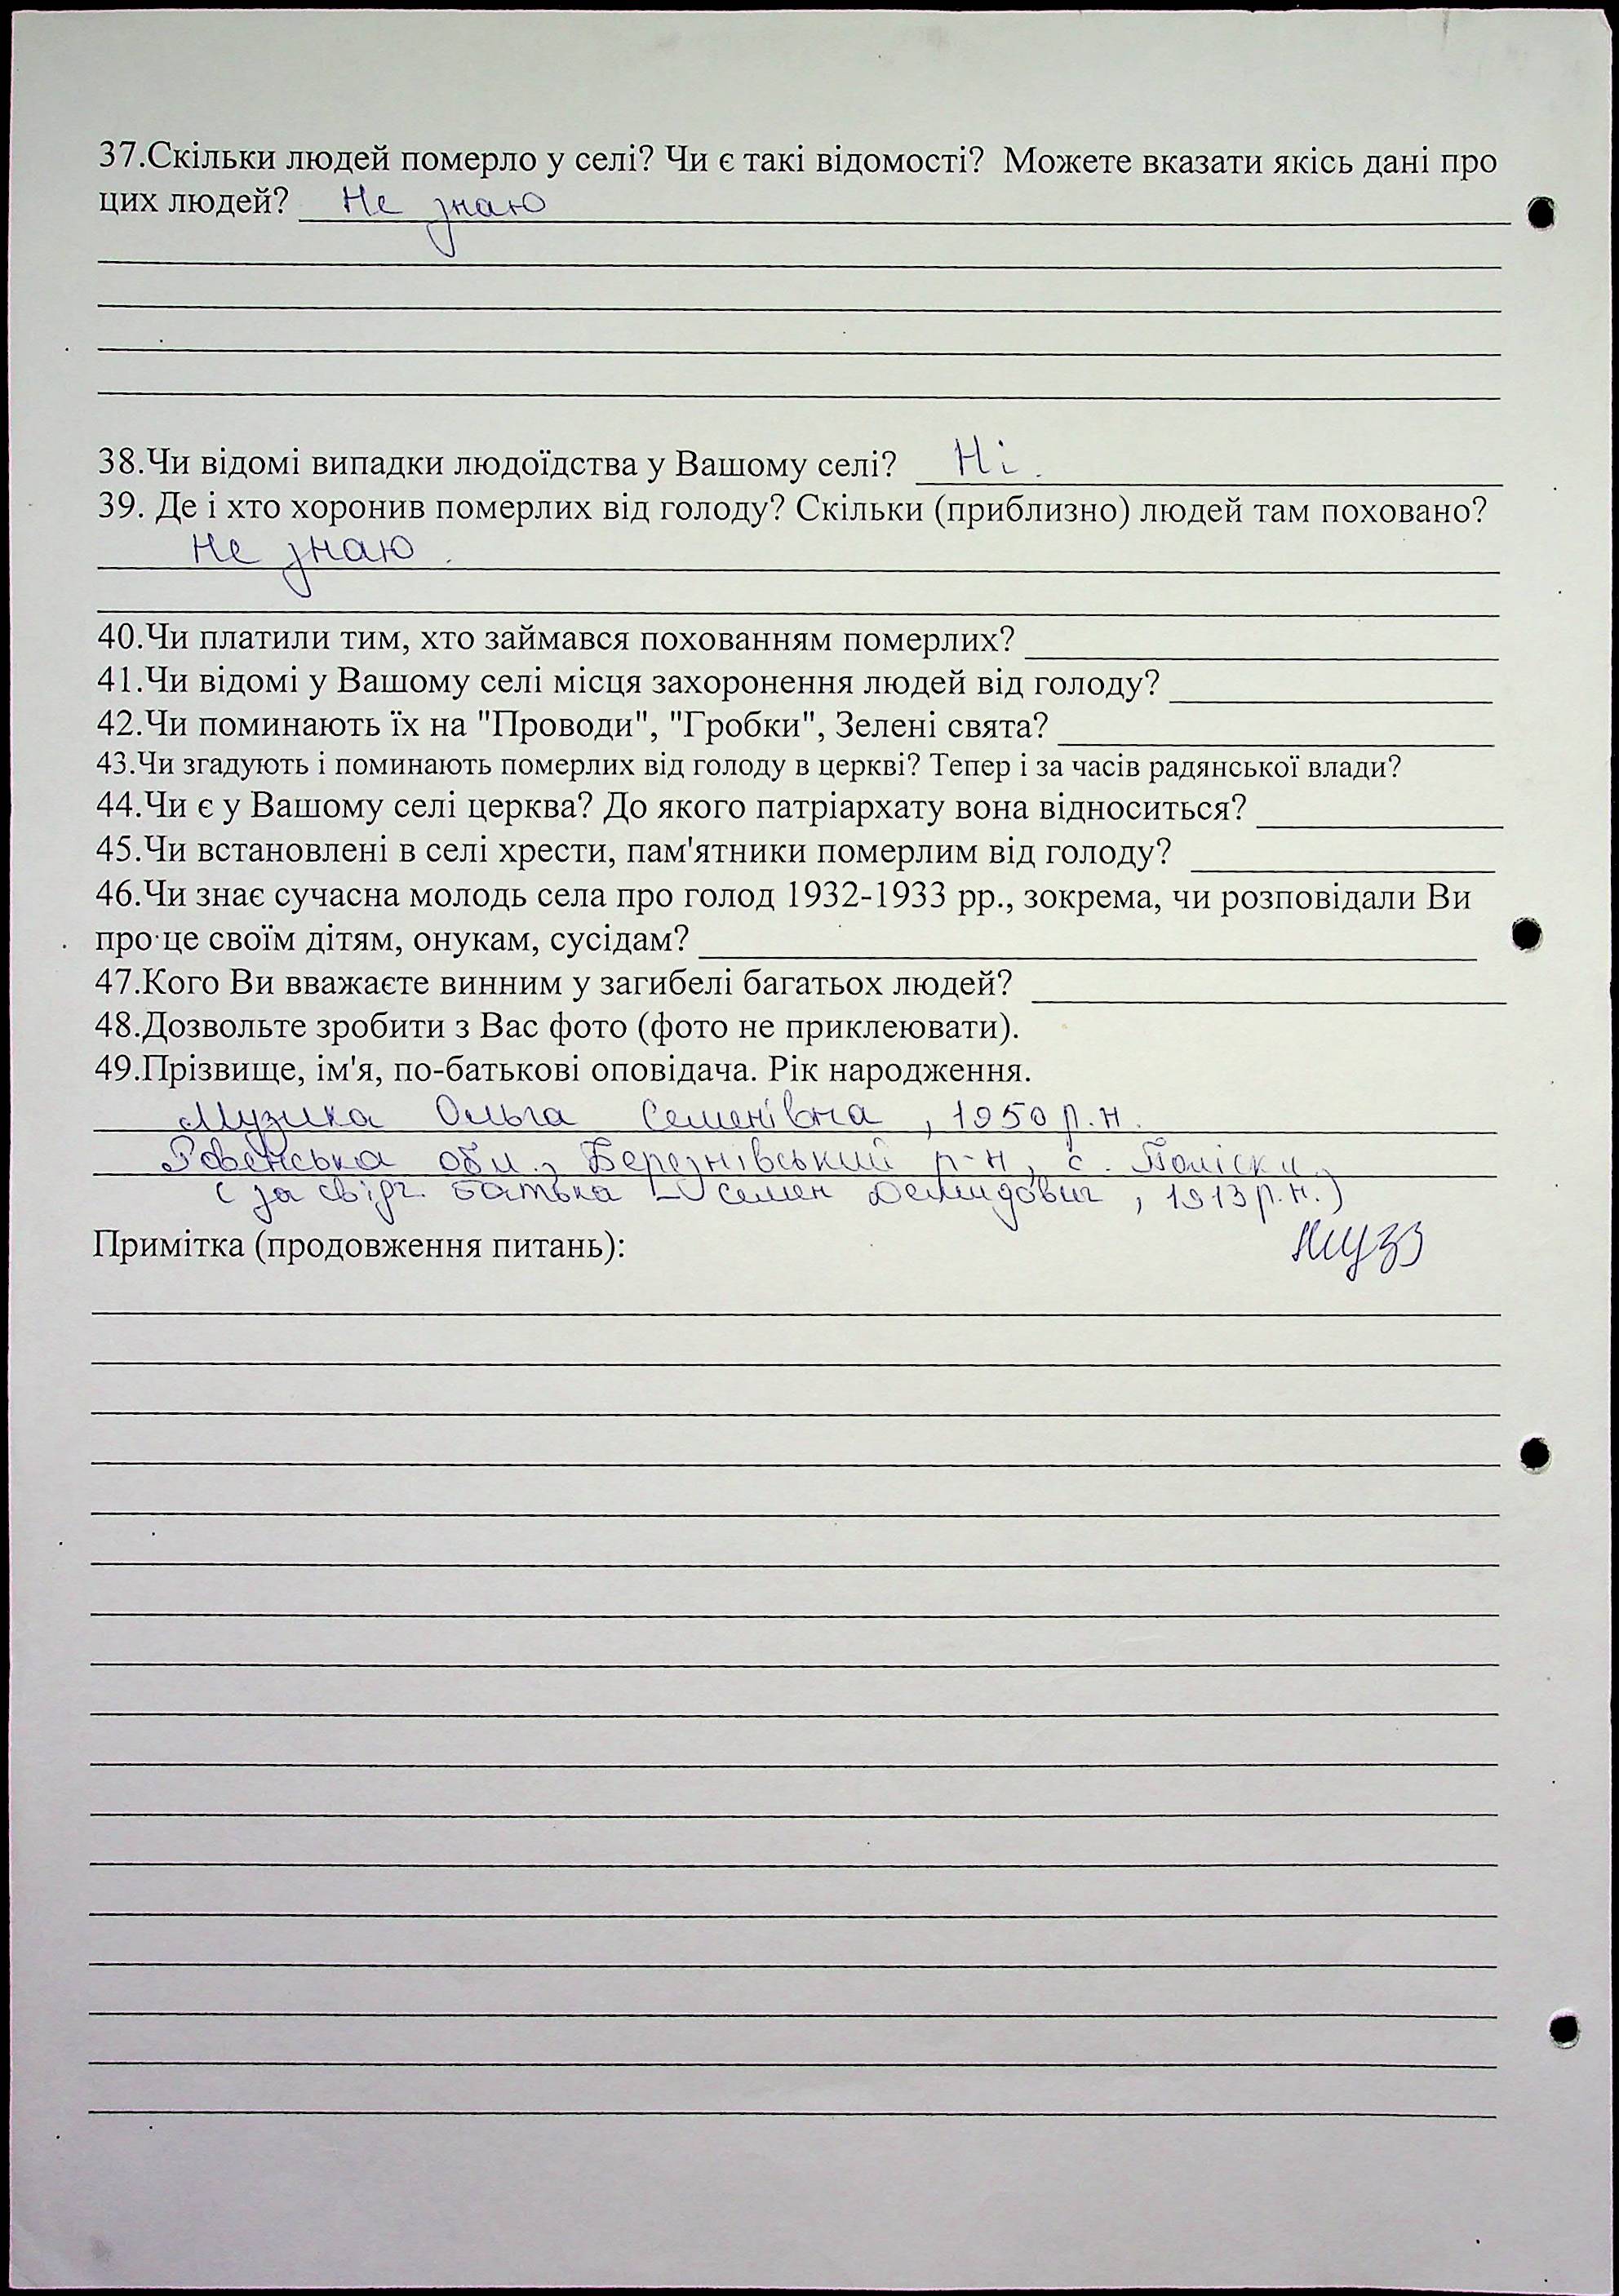 37.Скільки людей померло у селі? Чи є такі відомості? Можете вказати якісь дані про
цих людей? Не знаю
38.Чи відомі випадки людоїдства у Вашому селі? Ні.
39. Де і хто хоронив померлих від голоду? Скільки (приблизно) людей там поховано?
Не знаю.
40.Чи платили тим, хто займався похованням померлих?
41.Чи відомі у Вашому селі місця захоронення людей від голоду?
42.Чи поминають їх на "Проводи", "Гробки", Зелені свята?
43.Чи згадують і поминають померлих від голоду в церкві? Тепер і за часів радянської влади?
44.Чи є у Вашому селі церква? До якого патріархату вона відноситься?
45.Чи встановлені в селі хрести, пам'ятники померлим від голоду?
46.Чи знає сучасна молодь села про голод 1932-1933 рр., зокрема, чи розповідали Ви
про це своїм дітям, онукам, сусідам?
47.Кого Ви вважаєте винним у загибелі багатьох людей?
48.Дозвольте зробити з Вас фото (фото не приклеювати).
49.Прізвище, ім'я, по-батькові оповідача. Рік народження.
Музика Ольга Семенівна, 1950 р.н.
Ровенська обл., Березнівський р-н, с. Поліски
(за свідч. батька – Семен Демидович, 1913 р.н.)
Примітка (продовження питань):